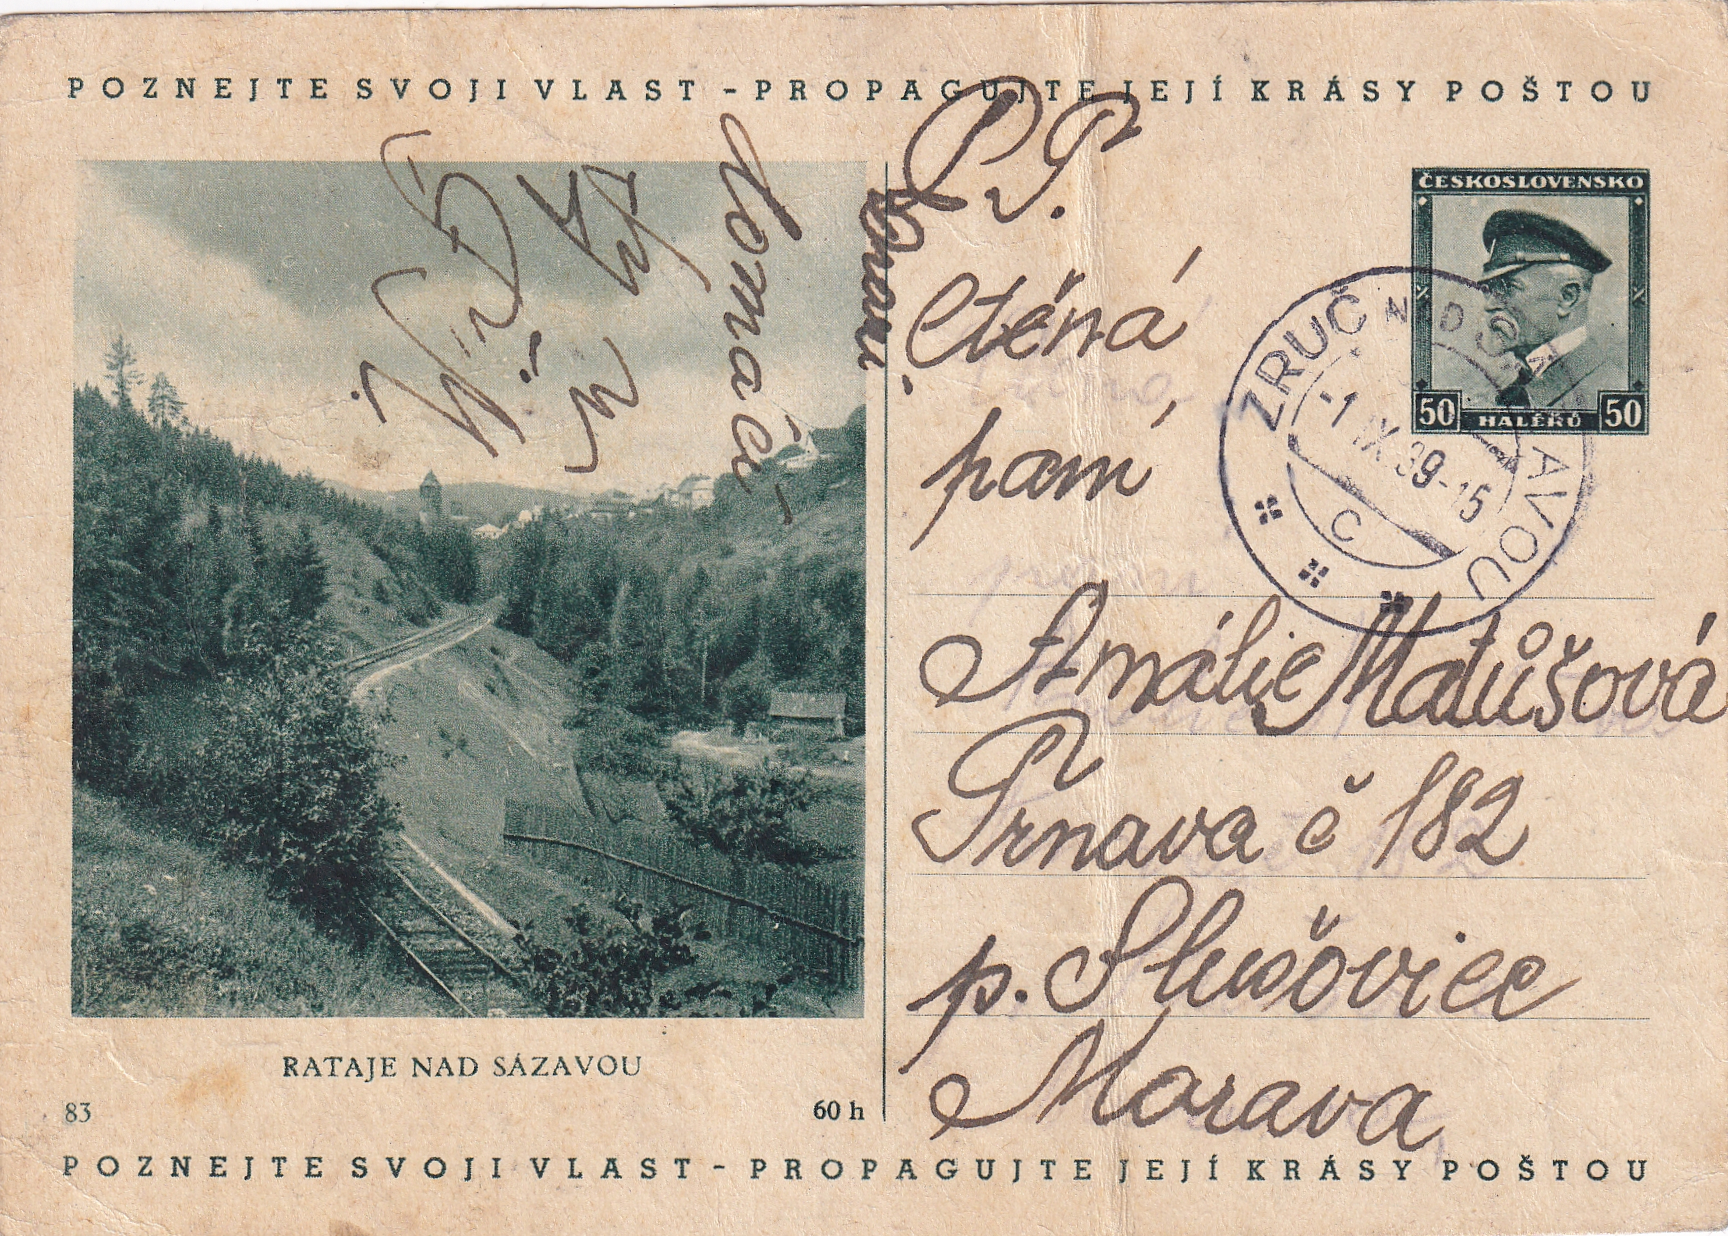 POZNEJTE SVOJI VLAST - PROPAGUJTE JEJÍ KRÁSY POŠTOU
ČESKOSLOVENSKO
50 HALÉŘŮ 50
ZRUČ NAD SÁZAVOU
-1 IX 39-15
C
P.T.
Ctěná
paní
Amálie Matůšová
Trnava č 182
p. Slušovice
Morava
domácí
RATAJE NAD SÁZAVOU
83
60 h
POZNEJTE SVOJI VLAST - PROPAGUJTE JEJÍ KRÁSY POŠTOU